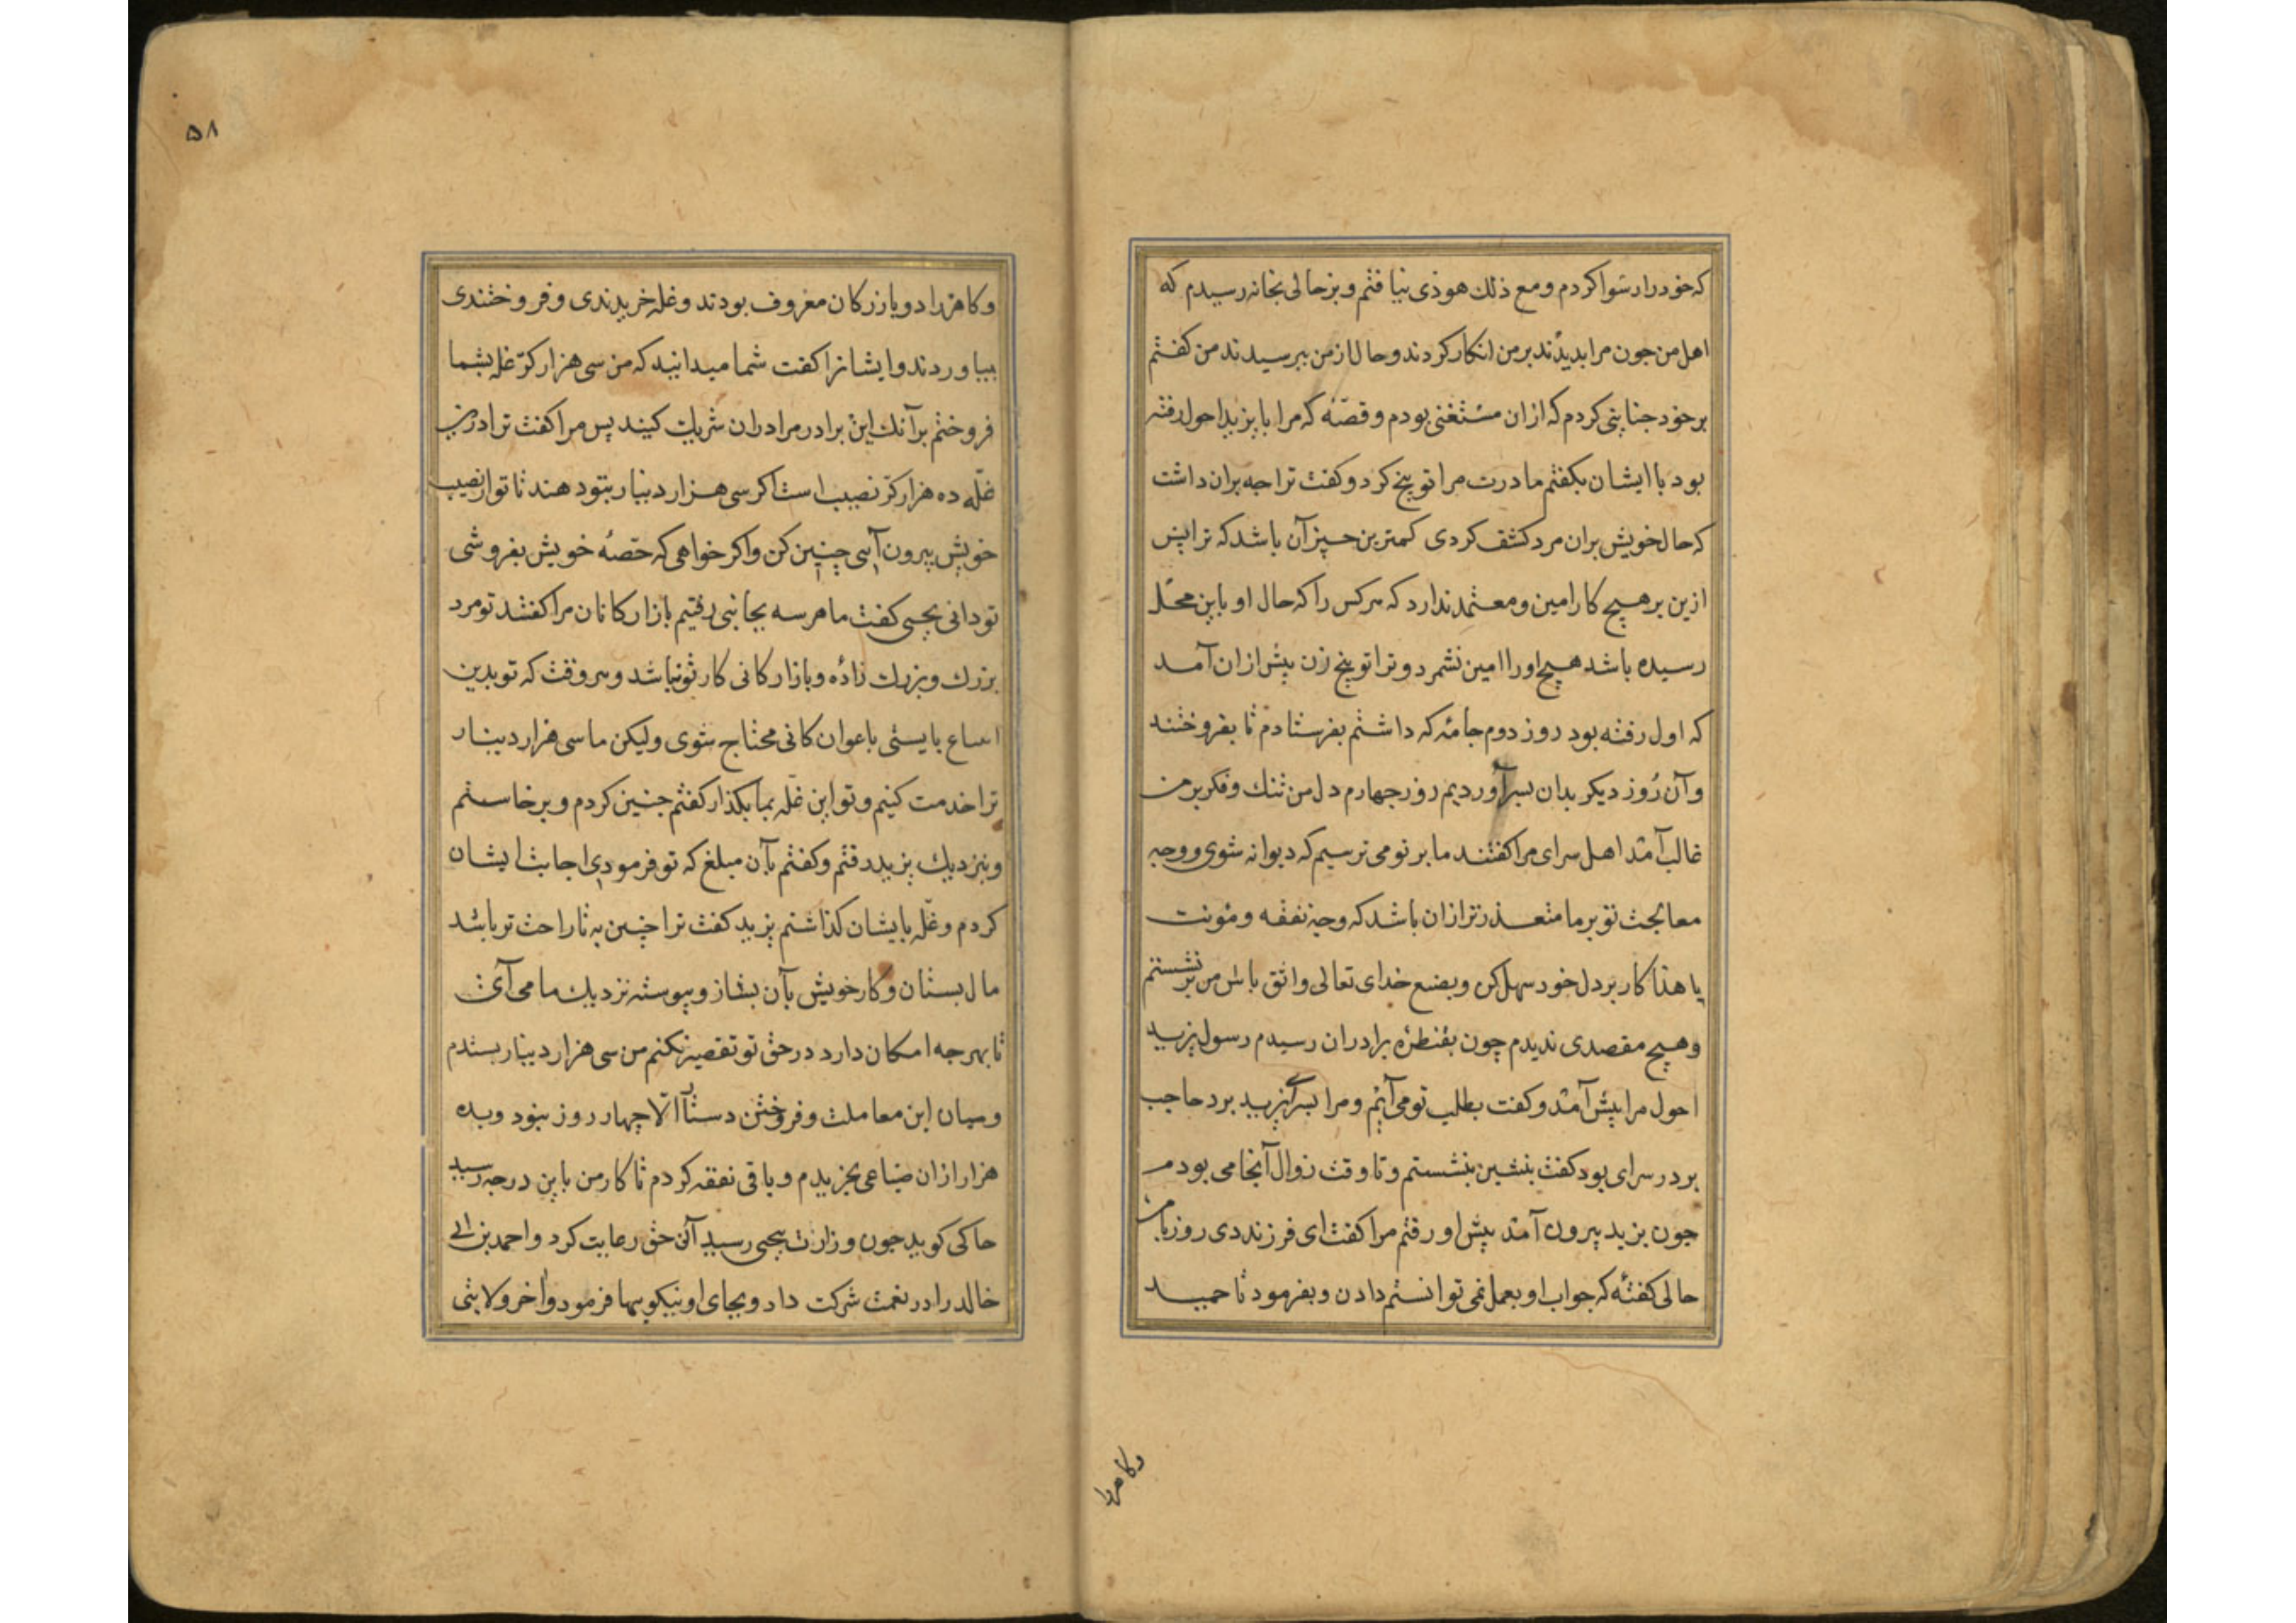 که خود را رسوا کردم و مع ذلک هوذی نیافتم و بزحالی بخانه رسیدم که
اهل من جون مرا بدیدند بر من انکار کردند و حال از من ببرسیدند من کفتم
بر خود جنایتی کردم که ازان مستغنی بودم و قصّه که مرا با یزید احول رفته
بود با ایشان بکفتم مادرت مرا توبیخ کرد و کفت ترا جه بران داشت
که حال خویش بران مرد کشف کردی کمترین چیز آن باشد که ترا پش
ازین بر هیچ کار امین و معتمد ندارد که هر کس را که حال او باین محلّ
رسیده باشد هیچ او را امین نشمرد و ترا توبیخ زن بیش ازان آمد
که اول رفته بود روز دوم جامهٔ که داشتم بفرستادم تا بفروختند
و آن روز دیکر بدان بسر آوردیم روز جهارم دل من تنک و فکر بر من
غالب آمد اهل سرای مرا کفتند ما بر تو می ترسیم که دیوانه شوی و وجه
معالجت تو بر ما متعذرتر ازان باشد که وجه نفقه و مؤنت
یا هذا کار بر دل خود سهل کن و بصنع خدای تعالی واثق باش من برنشستم
و هیچ مقصدی ندیدم چون بقنطرهٔ برادران رسیدم رسول یزید
احول مرا بیش آمد و کفت بطلب تو می آیم و مرا بسرای یزید برد حاجب
بر در سرای بود کفت بنشین بنشستم و تا وقت زوال آنجا می بودم
جون یزید بیرون آمد بیش او رفتم مرا کفت ای فرزند دی روز با من
حالی کفتهٔ که جواب او بعمل نمی توانستم دادن و بفرمود تا حمید
وکاهردا
۵۸
و کاهردا دو بازرکان معروف بودند و غله خریدندی و فروختندی
بیاوردند و ایشانرا کفت شما میدانید که من سی هزار کرّ غله بشما
فروختم بر آنک این برادر مرا دران شریک کنید پس مرا کفت ترا درین
غلّه ده هزار کرّ نصیب است اکر سی هزار دینار بتو دهند تا تو از نصیب
خویش بیرون آیی چنین کن و اکر خواهی که حصّه خویش بفروشی
تو دانی یحیی کفت ما هر سه بجانبی رفتیم بازارکانان مرا کفتند تو مرد
بزرک و بزرک زادهٔ و بازارکانی کار تو نباشد و هر وقت که تو بدین
بایستی باعوان محتاج شوی ولیکن ما سی هزار دینار
ترا خدمت کنیم و تو این غلّه بما بکذار کفتم جنین کردم و برخاستم
و بنزدیک یزید رفتم و کفتم بآن مبلغ که تو فرمودی اجابت ایشان
کردم و غلّه بایشان کذاشتم یزید کفت ترا چنین به تا راحت تر باشد
مال بستان و کار خویش بآن بساز و بیوسته نزدیک ما می آی
تا بهر جه امکان دارد در حق تو تقصیر نکنم من سی هزار دینار بستدم
و میان این معاملت و فروختن الّا چهار روز نبود و بده
هزار ازان ضیاعی بخریدم و باقی نفقه کردم تا کار من باین درجه رسید
حاکی کوید جون وزارت بیحیی رسید آن حق رعایت کرد و احمد بن ابی
خالد را در نعمت شرکت داد و بجای او نیکویها فرمود و آخر ولایتی